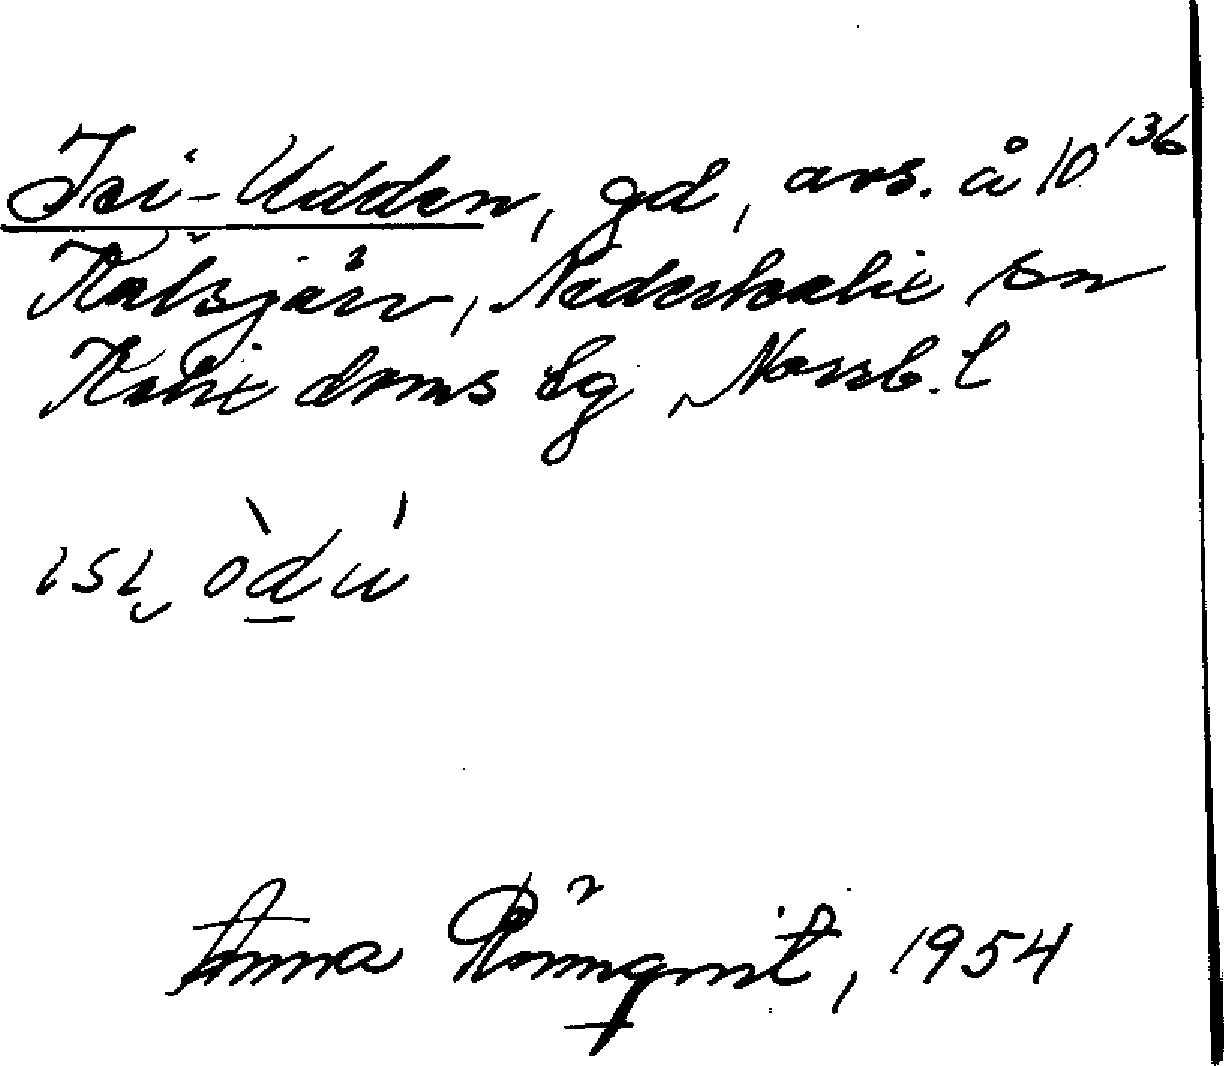 Isi-Udden, gd, avs. å 10¹³⁶
Kälsjärv, Nederkalix sn
Kalix doms lg Norrb. l
Anna Rönnqvist, 1954